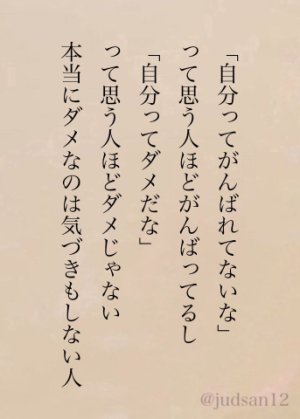 「自分ってがんばれてないな」
って思う人ほどがんばってるし
「自分ってダメだな」
って思う人ほどダメじゃない
本当にダメなのは気づきもしない人
@judsan12